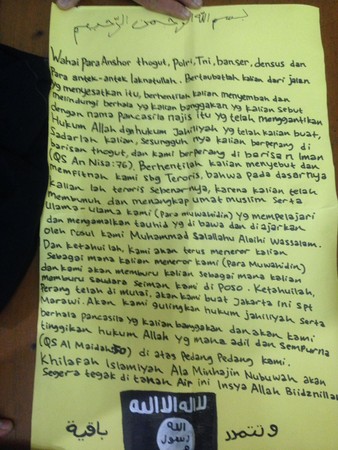 بسم الله الرحمن الرحيم
Wahai Para Anshor thogut, Polri, Tni, banser, densus dan
Para antek-antek laknatullah. Bertaubatlah kalian dari jalan
yg menyesatkan itu, berhentilah kalian menyembah dan
melindungi berhala yg kalian banggakan yg kalian sebut
dengan nama pancasila najis itu yg telah menggantikan
Hukum Allah dgn hukum Jahiliyah yg telah kalian buat,
Sadarlah kalian, sesungguh nya kalian berperang di
barisan thogut, dan kami berperang di barisan Iman
(QS An Nisa:76) Berhentilah kalian menyebut dan
mempitnah kami sbg Teroris, bahwa pada dasarnya
kalian lah teroris sebenarnya, karena kalian telah
membunuh dan menangkap umat muslim serta
ulama-ulama kami (Para muwahidin) yg mempelajari
dan mengamalkan tauhid yg di bawa dan di ajarkan
oleh rosul kami Muhammad Salallahu Alaihi Wassalam.
Dan ketahuilah, kami akan terus meneror kalian
Sebagai mana kalian meneror kami (Para Muwahidin)
dan kami akan memburu kalian sebagai mana kalian
memburu saudara seiman kami di Poso. Ketahuilah,
Perang telah di mulai, akan kami buat Jakarta ini spt
Marawi. Akan kami gulingkan hukum jahiliyah serta
berhala pancasila yg kalian banggakan dan akan kami
tinggikan hukum Allah yg maha adil dan sempurna
(QS Al Maidah:50) di atas Pedang Pedang kami.
Khilafah Islamiyah Ala Minhajin Nubuwah akan
Segera tegak di tanah Air ini Insya Allah Biidznillah
لا اله الا الله
الله
رسول
محمد
باقية وتتمدد